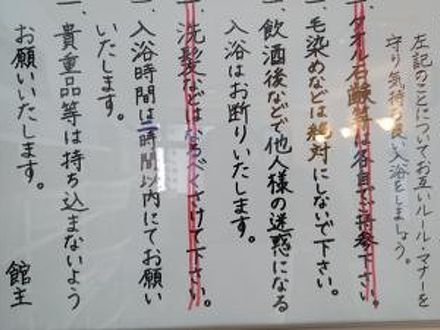 左記のことについてお互いルール・マナーを
守り気持の良い入浴をしましょう。
一、タオル石鹸等は各自でご持参下さい。
一、毛染めなどは絶対にしないで下さい。
一、飲酒後などで他人様の迷惑になる
入浴はお断りいたします。
一、洗髪などはなるべくさけて下さい。
一、入浴時間は一時間以内にてお願い
いたします。
一、貴重品等は持ち込まないよう
お願いいたします。
館主